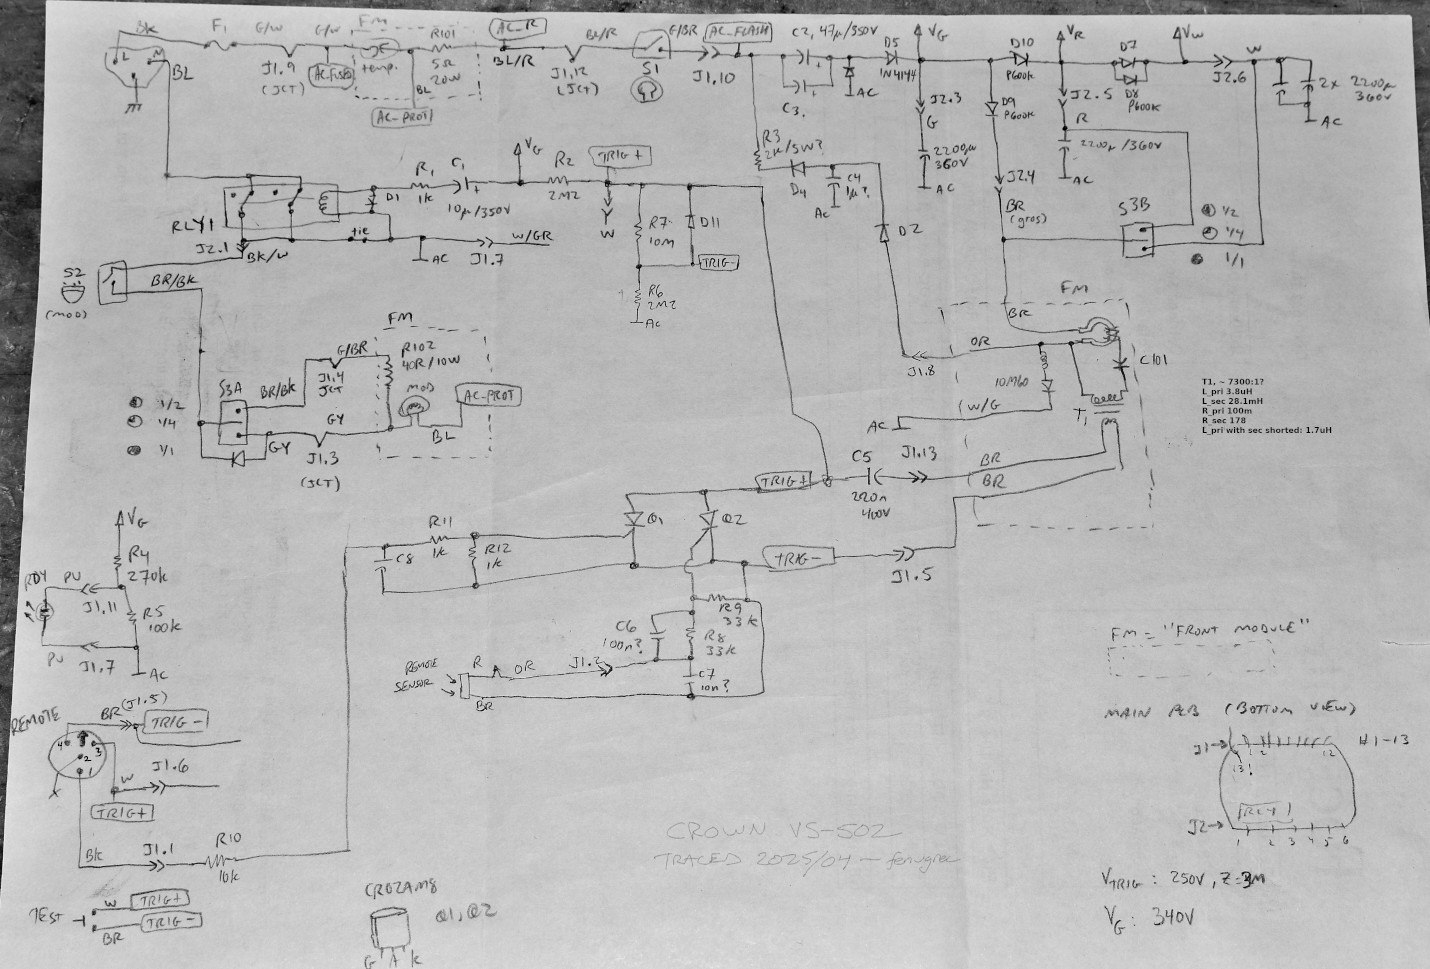 Bk
F1
G/W
G/W
FM
R101
5Ω
20W
temp.
AC_R
BL/R
BL/R
J1,12
(JCT)
S1
G/BR
AC_FLASH
J1,10
C2, 47µ/350V
C3.
D5
1N4144
AC
VG
J2.3
G
2200µ
360V
AC
D10
P600K
D9
P600K
J2.4
BR
(gros)
VR
J2.5
R
2200µ/360V
AC
D7
D8
P600K
VW
J2.6
W
2x 2200µ
360V
AC
L
N
BL
J1.9
(JCT)
AC_Fused
BL
AC-PROT
RLY1
J2.1
BK/W
D1
tie
R1
1k
C1
10µ/350V
VG
R2
2M2
TRIG+
W
AC
J1.7
W/GR
R7
10M
D11
TRIG-
R6
2M2
AC
R3
2K/5W?
D4
C4
1µ?
AC
D2
S3B
1/2
1/4
1/1
S2
(MOD)
BR/BK
FM
G/BR
J1.4
JCT
R102
40R/10W
MOD
AC-PROT
BL
S3A
BR/BK
GY
GY
J1.3
(JCT)
1/2
1/4
1/1
FM
BR
OR
J1.8
10M60
W/G
AC
C101
T1
T1, ~ 7300:1?
L_pri 3.8uH
L_sec 28.1mH
R_pri 100m
R_sec 178
L_pri with sec shorted: 1.7uH
TRIG+
C5
220n
400V
J1.13
BR
BR
VG
R4
270k
RDY
PU
J1,11
R5
100k
PU
J1.7
AC
C8
R11
1k
R12
1k
Q1
Q2
TRIG-
J1.5
R9
33k
C6
100n?
R8
33k
C7
10n?
REMOTE
SENSOR
R
OR
J1.2
BR
REMOTE
BR
(J1.5)
TRIG-
4
3
2
1
W
J1.6
TRIG+
Bk
J1.1
R10
10k
TEST
W
TRIG+
BR
TRIG-
CR02AM8
Q1, Q2
G A K
CROWN VS-502
TRACED 2025/04 - fenugrec
FM = "FRONT MODULE"
MAIN PCB (BOTTOM VIEW)
J1
1 2
12
13!
#1-13
RLY1
J2
1 2 3 4 5 6
VTRIG : 250V, Z=3M
VG : 340V